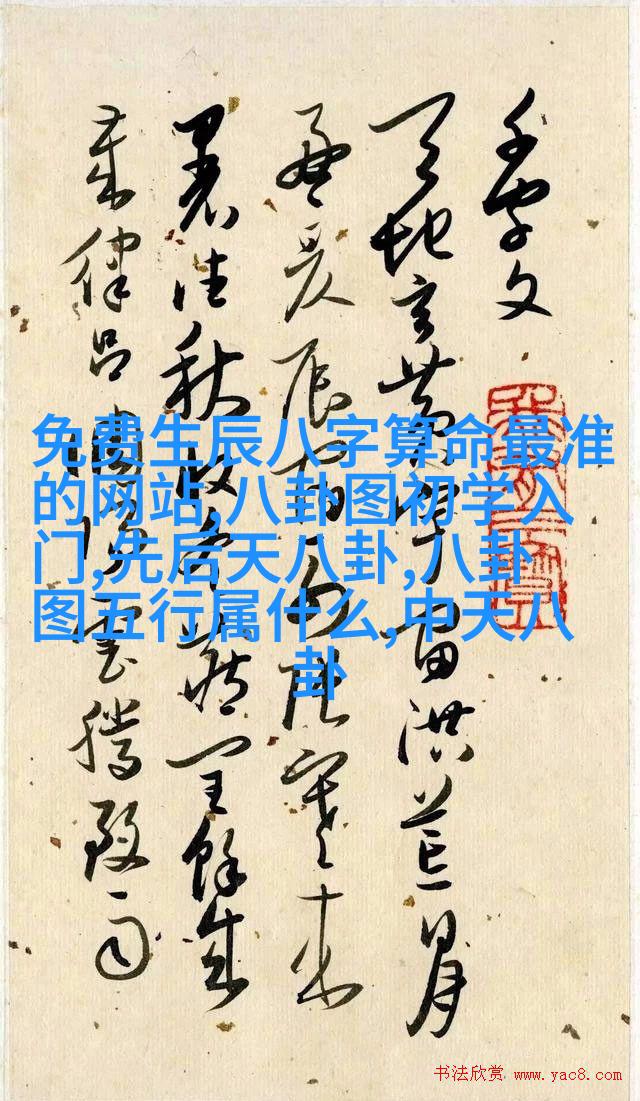 千字文
天地玄黄宇宙洪荒日月
盈昃辰宿列张寒来
暑往秋收冬藏闰餘成
歲律吕調陽雲騰致雨
免费生辰八字算命最准
的网站,八卦图初学入
门,先后天八卦,八卦
图五行属什么,中天八
卦
书法欣赏 www.yac8.com